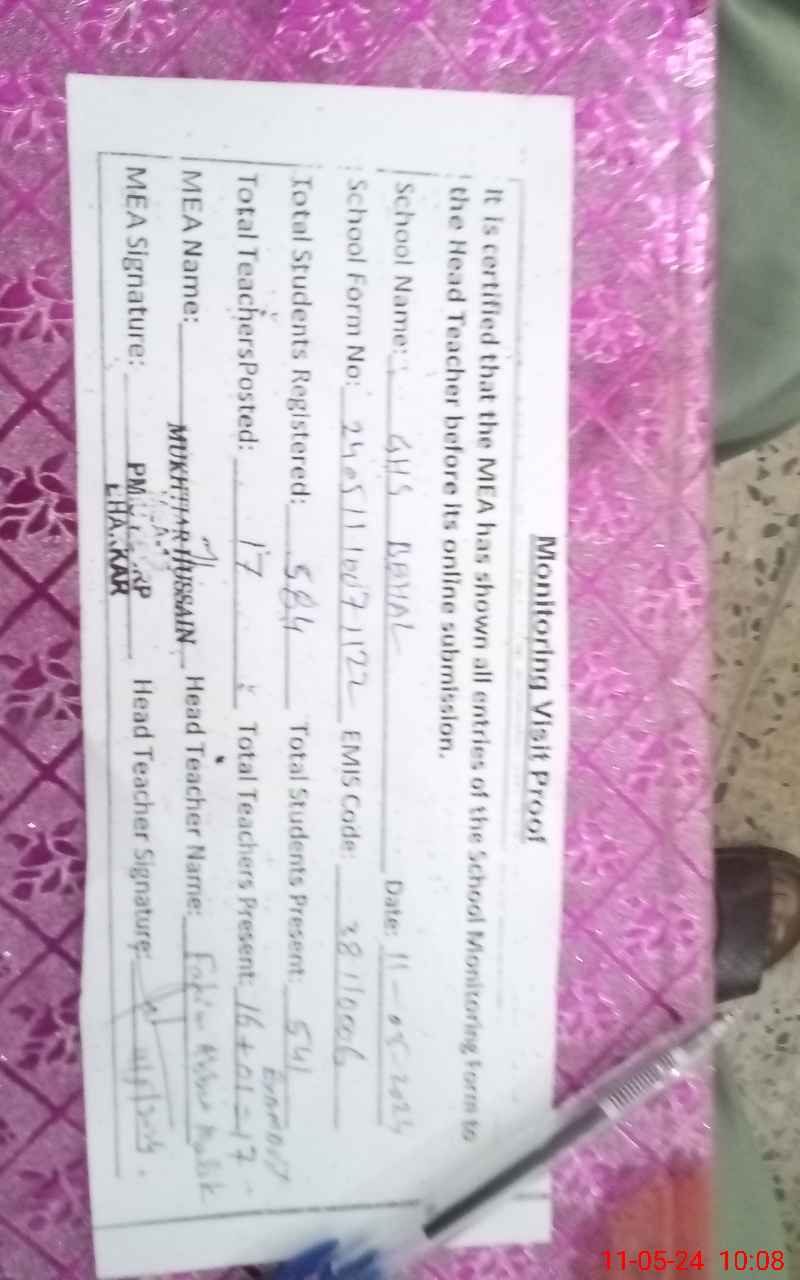 Monitoring Visit Proof
It is certified that the MEA has shown all entries of the School Monitoring Form to
the Head Teacher before its online submission.
School Name: GHS BEHAL Date: 11-05-2024
School Form No: 24051110071122 EMIS Code: 38110006
Total Students Registered: 584 Total Students Present: 541
Total TeachersPosted: 17 Total Teachers Present: 16+01=17
MEA Name: MUKHTIAR HUSSAIN Head Teacher Name: Abbas Malik
MEA Signature: Head Teacher Signature:
BHAKKAR
11-05-24 10:08